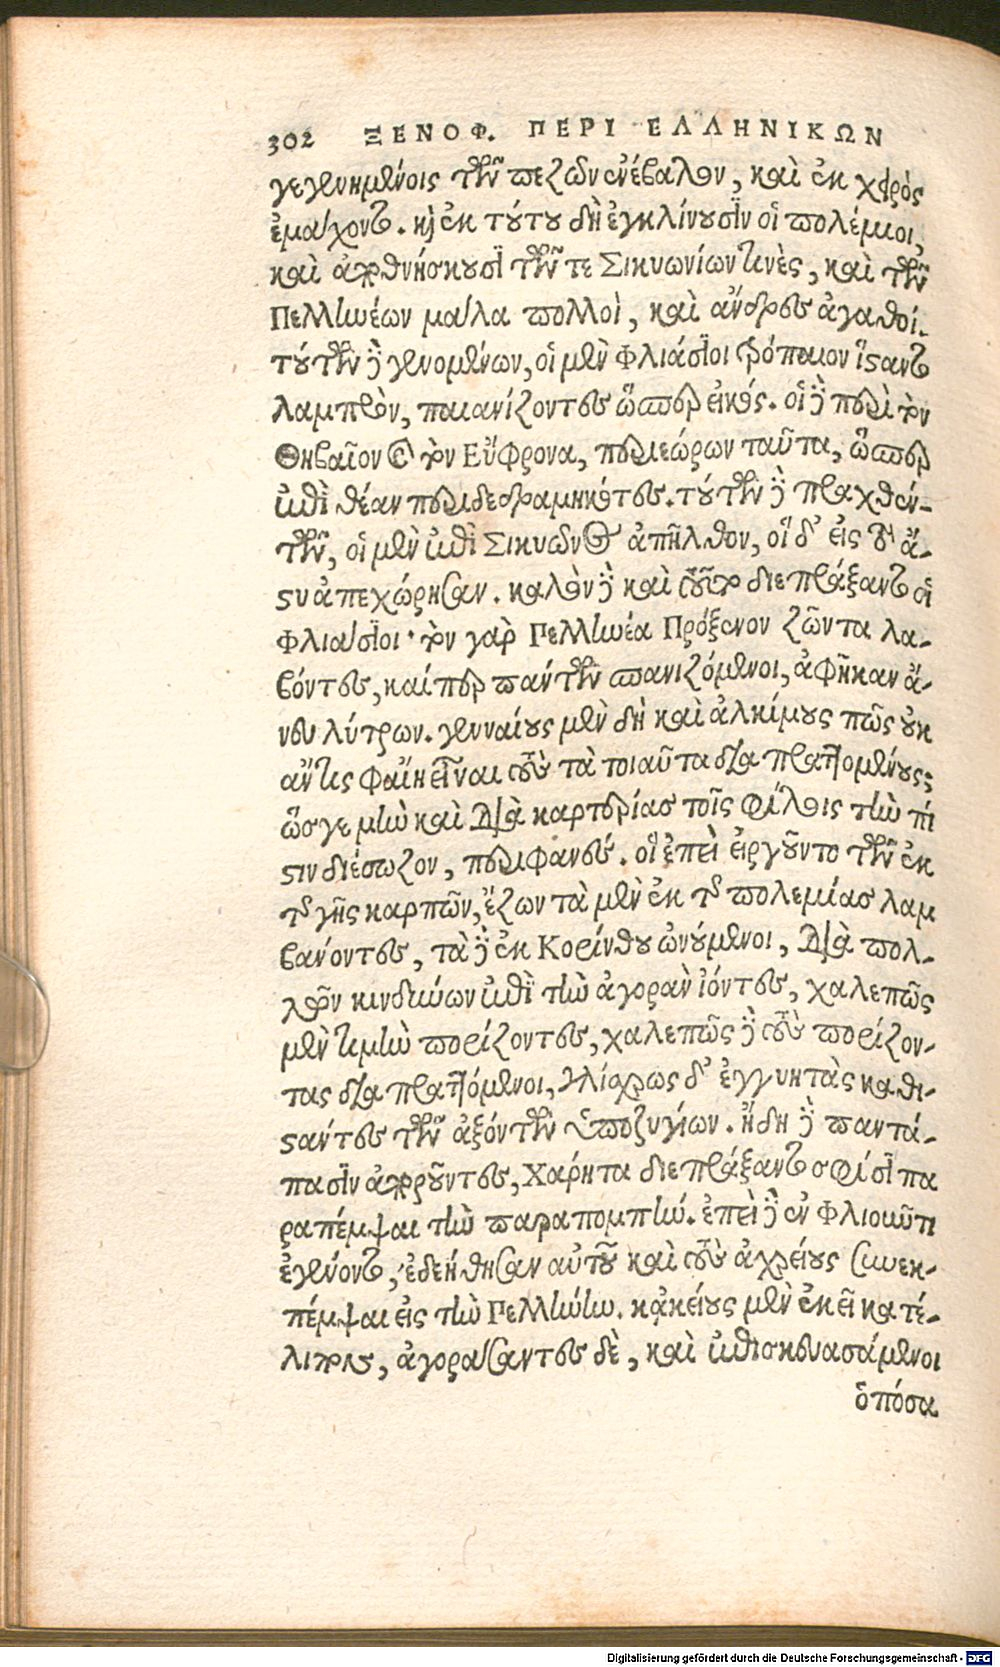 302 ΞΕΝΟΦ. ΠΕΡΙ ΕΛΛΗΝΙΚΩΝ
γεγενημένοις τῶν πεζῶν ἐνέβαλον, καὶ ἐκ χειρὸς
ἐμάχοντο. καὶ ἐκ τούτου δὴ ἐγκλίνουσιν οἱ πολέμιοι,
καὶ ἀποθνήσκουσι τῶν τε Σικυωνίων τινὲς, καὶ τῶν
Πελληνέων μάλα πολλοὶ, καὶ ἄνδρες ἀγαθοί.
τούτων δὲ γενομένων, οἱ μὲν Φλιάσιοι τρόπαιον ἵσαντο
λαμπρὸν, παιανίζοντες ὥσπερ εἰκός. οἱ δὲ περὶ τὸν
Θηβαῖον καὶ τὸν Εὔφρονα, περιεώρων ταῦτα, ὥσπερ
ἐπὶ θέαν περιδεδραμηκότες. τούτων δὲ πραχθέν-
των, οἱ μὲν ἐπὶ Σικυῶνος ἀπῆλθον, οἱ δ' εἰς τὸ ἄ-
στυ ἀπεχώρησαν. καλὸν δὲ καὶ τοῦτο διεπράξαντο οἱ
Φλιάσιοι· τὸν γὰρ Πελληνέα Πρόξενον ζῶντα λα-
βόντες, καίπερ πάντων σπανιζόμενοι, ἀφῆκαν ἄ-
νευ λύτρων. γενναίους μὲν δὴ καὶ ἀλκίμους πῶς οὐκ
ἄν τις φαίη εἶναι τοὺς τὰ τοιαῦτα διαπραττομένους;
ὥς γε μὴν καὶ διὰ καρτερίας τοῖς φίλοις τὴν πί
στιν διέσωζον, περιφανές. οἳ ἐπεὶ εἴργοντο τῶν ἐκ
τῆς γῆς καρπῶν, ἔζων τὰ μὲν ἐκ τῆς πολεμίας λαμ
βάνοντες, τὰ δὲ ἐκ Κορίνθου ὠνούμενοι, διὰ πολ-
λῶν κινδύνων ἐπὶ τὴν ἀγορὰν ἰόντες, χαλεπῶς
μὲν τιμὴν πορίζοντες, χαλεπῶς δὲ τοὺς πορίζον-
τας διαπραττόμενοι, γλίσχρως δ' ἐγγυητὰς καθι-
στάντες τῶν ἀξόντων ὑποζυγίων. ἤδη δὲ παντά-
πασιν ἀποροῦντες, Χάρητα διεπράξαντο σφίσι πα
ραπέμψαι τὴν παραπομπήν. ἐπεὶ δὲ ἐν Φλιοῦντι
ἐγένοντο, ἐδεήθησαν αὐτοῦ καὶ τοὺς ἀχρείους συνεκ-
πέμψαι εἰς τὴν Πελλήνην. κἀκείους μὲν ἐκεῖ κατέ-
λιπον, ἀγοράσαντες δὲ, καὶ ἐπισκευασάμενοι
ὁπόσα
Digitalisierung gefördert durch die Deutsche Forschungsgemeinschaft - DFG